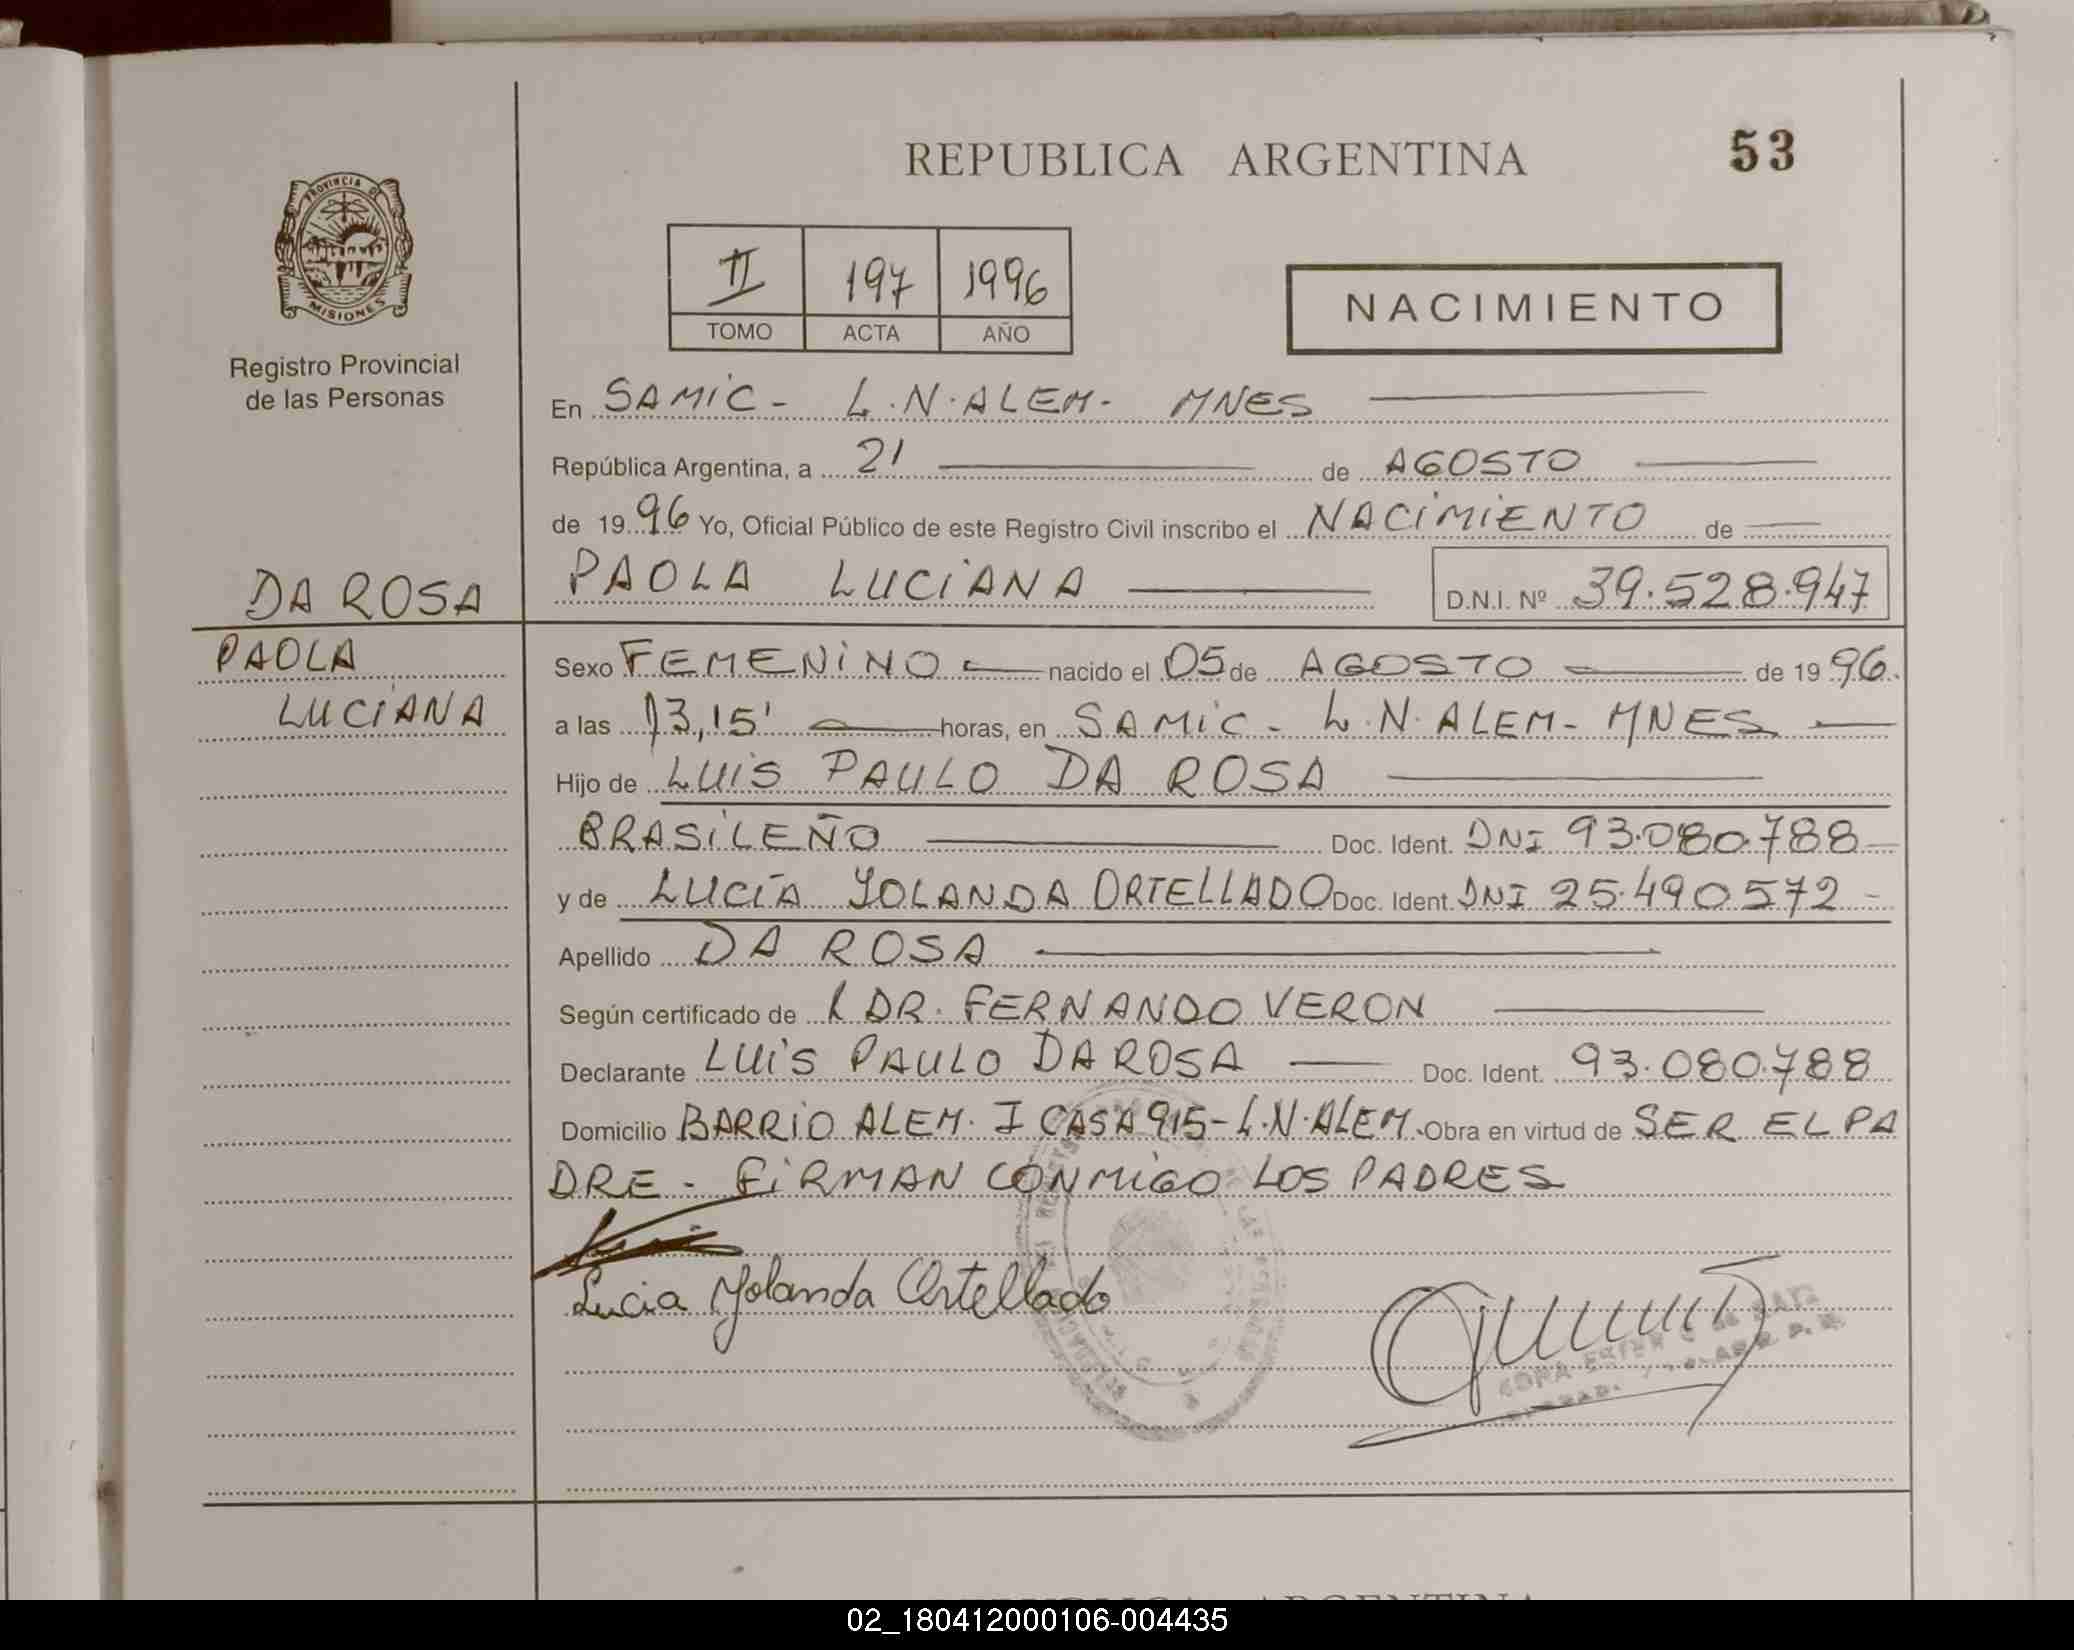 REPUBLICA ARGENTINA
53
PROVINCIA D
MISIONES
Registro Provincial
de las Personas
II 197 1996
TOMO ACTA AÑO
NACIMIENTO
En SAMIC - L.N.ALEM - MNES
República Argentina, a 21 de AGOSTO
de 1996 Yo, Oficial Público de este Registro Civil inscribo el NACIMIENTO de
PAOLA LUCIANA D.N.I. Nº 39.528.947
DA ROSA
PAOLA
LUCIANA
Sexo FEMENINO nacido el 05 de AGOSTO de 1996.
a las 13,15' horas, en SAMIC - L.N.ALEM - MNES
Hijo de LUIS PAULO DA ROSA
BRASILEÑO Doc. Ident. DNI 93.080.788
y de LUCIA YOLANDA ORTELLADO Doc. Ident. DNI 25.490.572
Apellido DA ROSA
Según certificado de DR. FERNANDO VERON
Declarante LUIS PAULO DA ROSA Doc. Ident. 93.080.788
Domicilio BARRIO ALEM. I CASA 915 - L.N.ALEM. Obra en virtud de SER EL PA
DRE - FIRMAN CONMIGO LOS PADRES
Lucia Yolanda Ortellado
REPUBLICA ARGENTINA
02_180412000106-004435